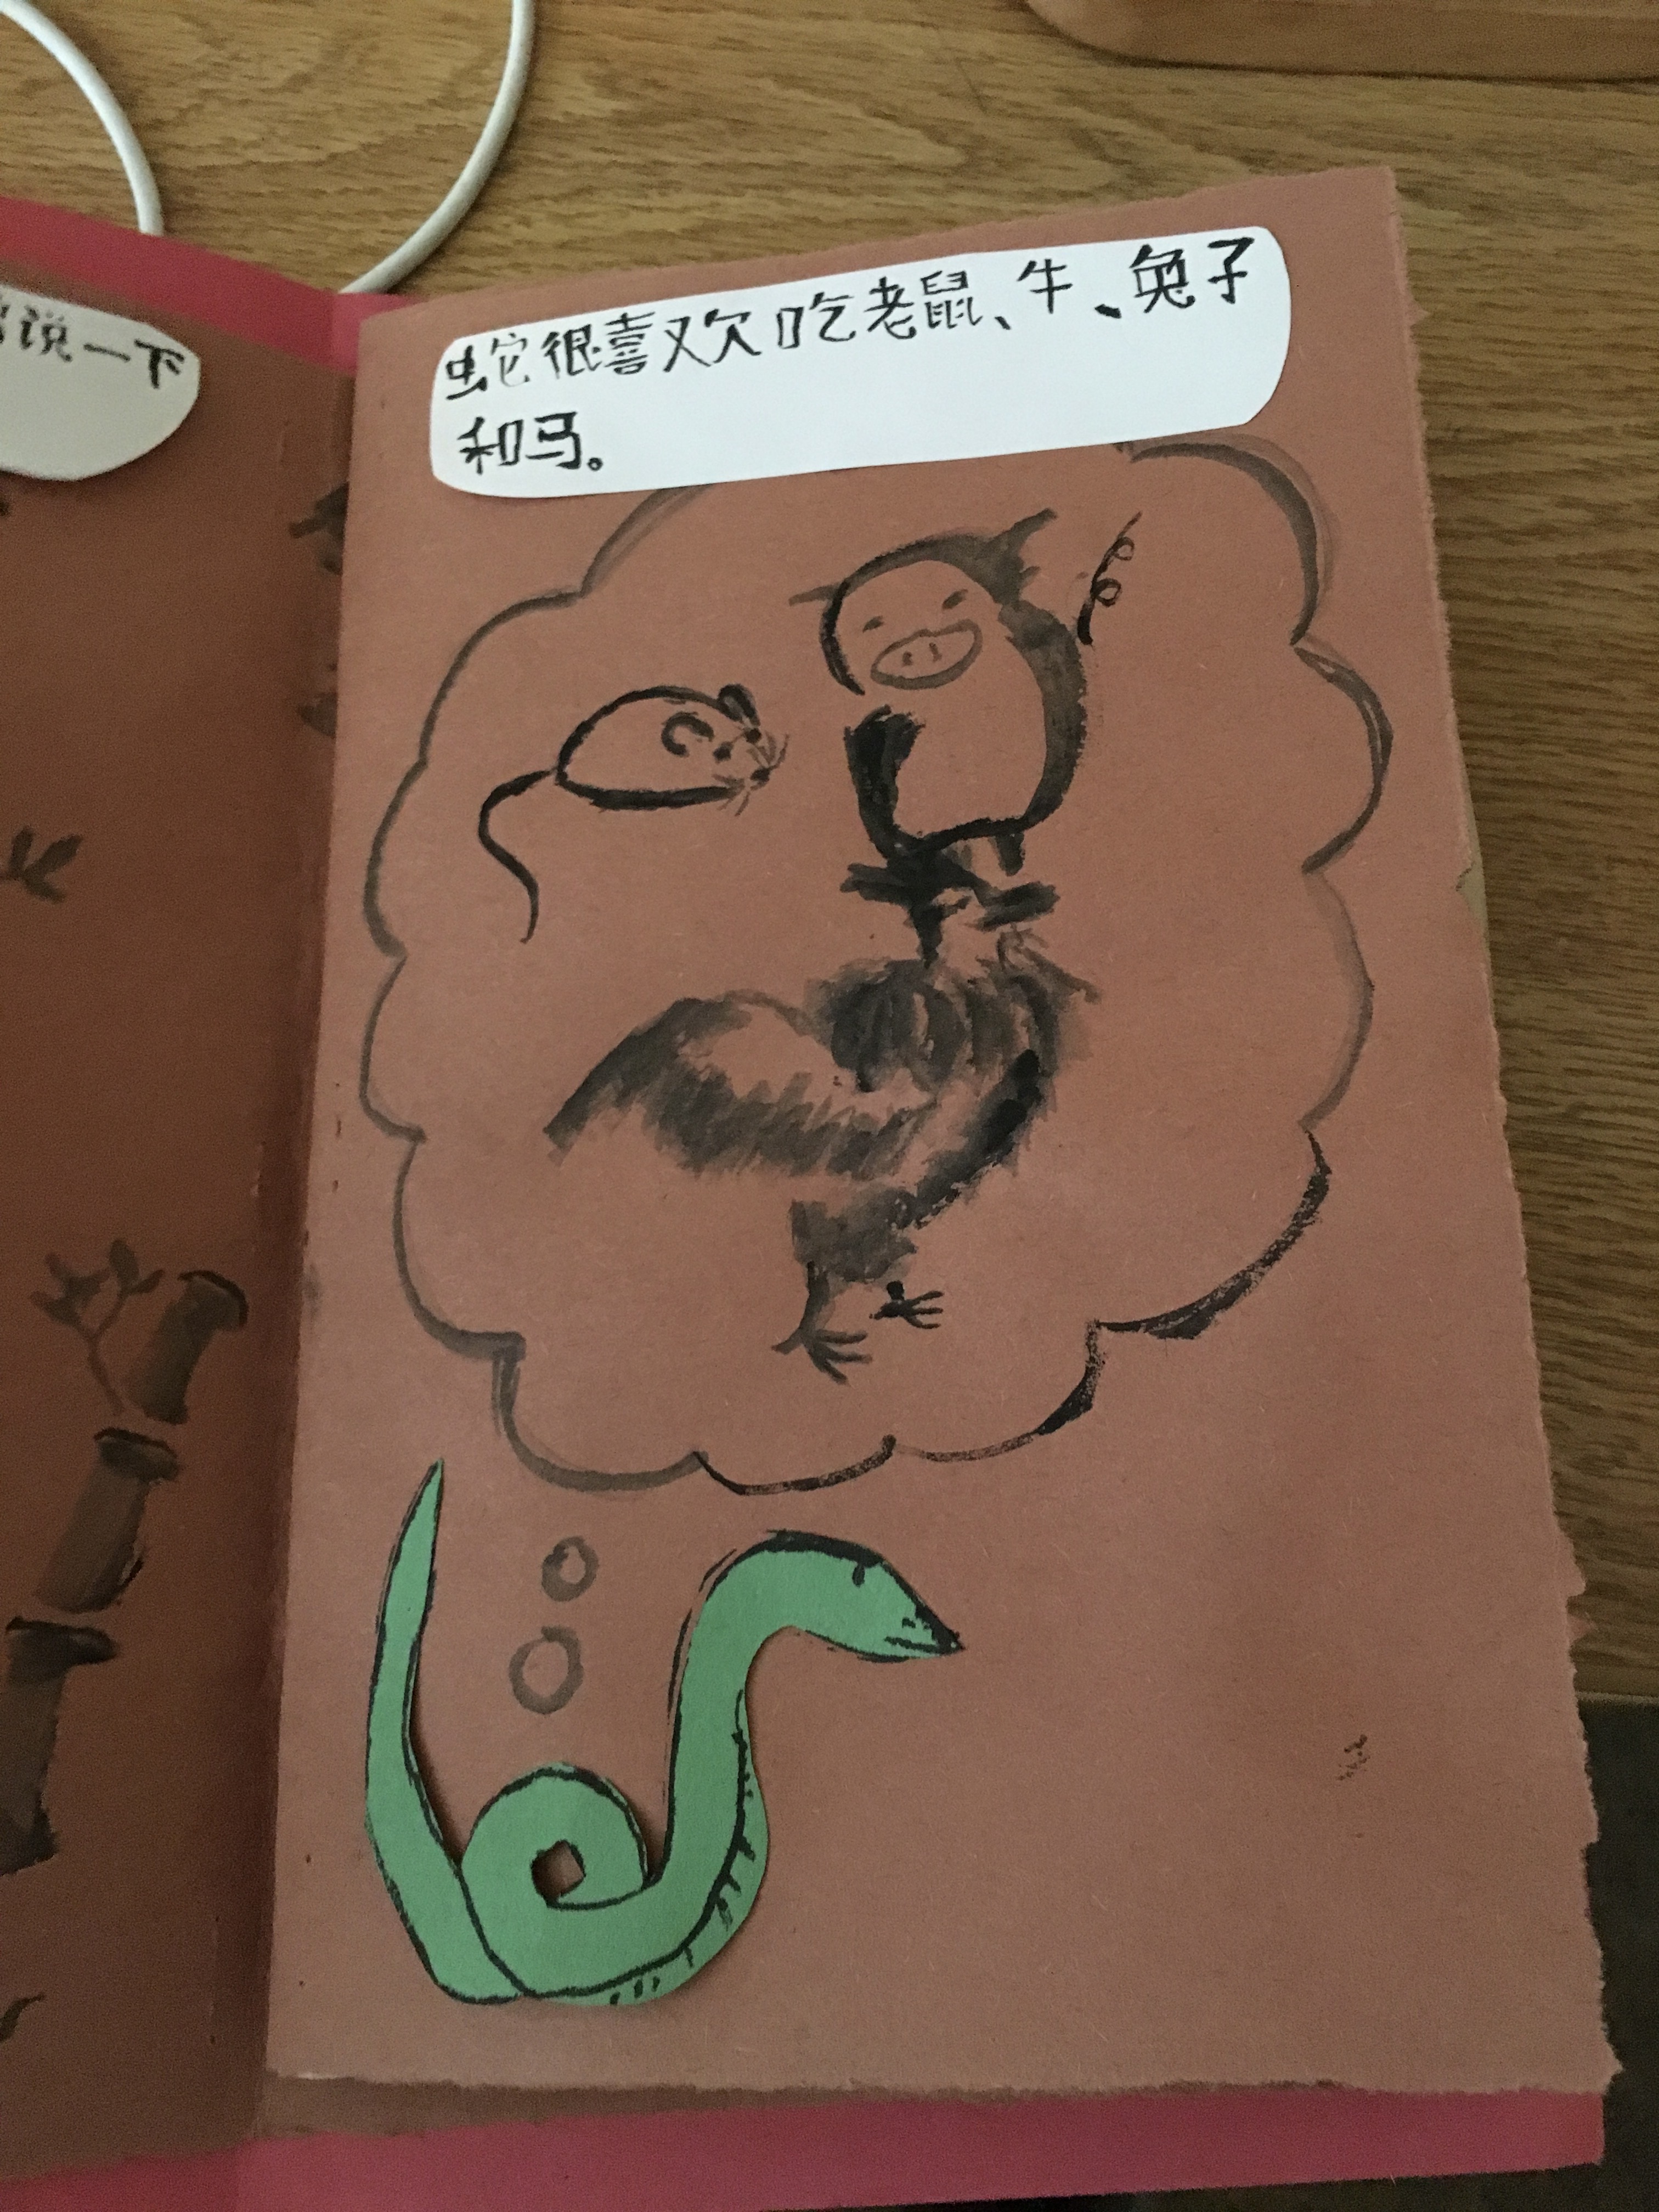 说一下
蛇很喜欢吃老鼠、牛、兔子
和马。